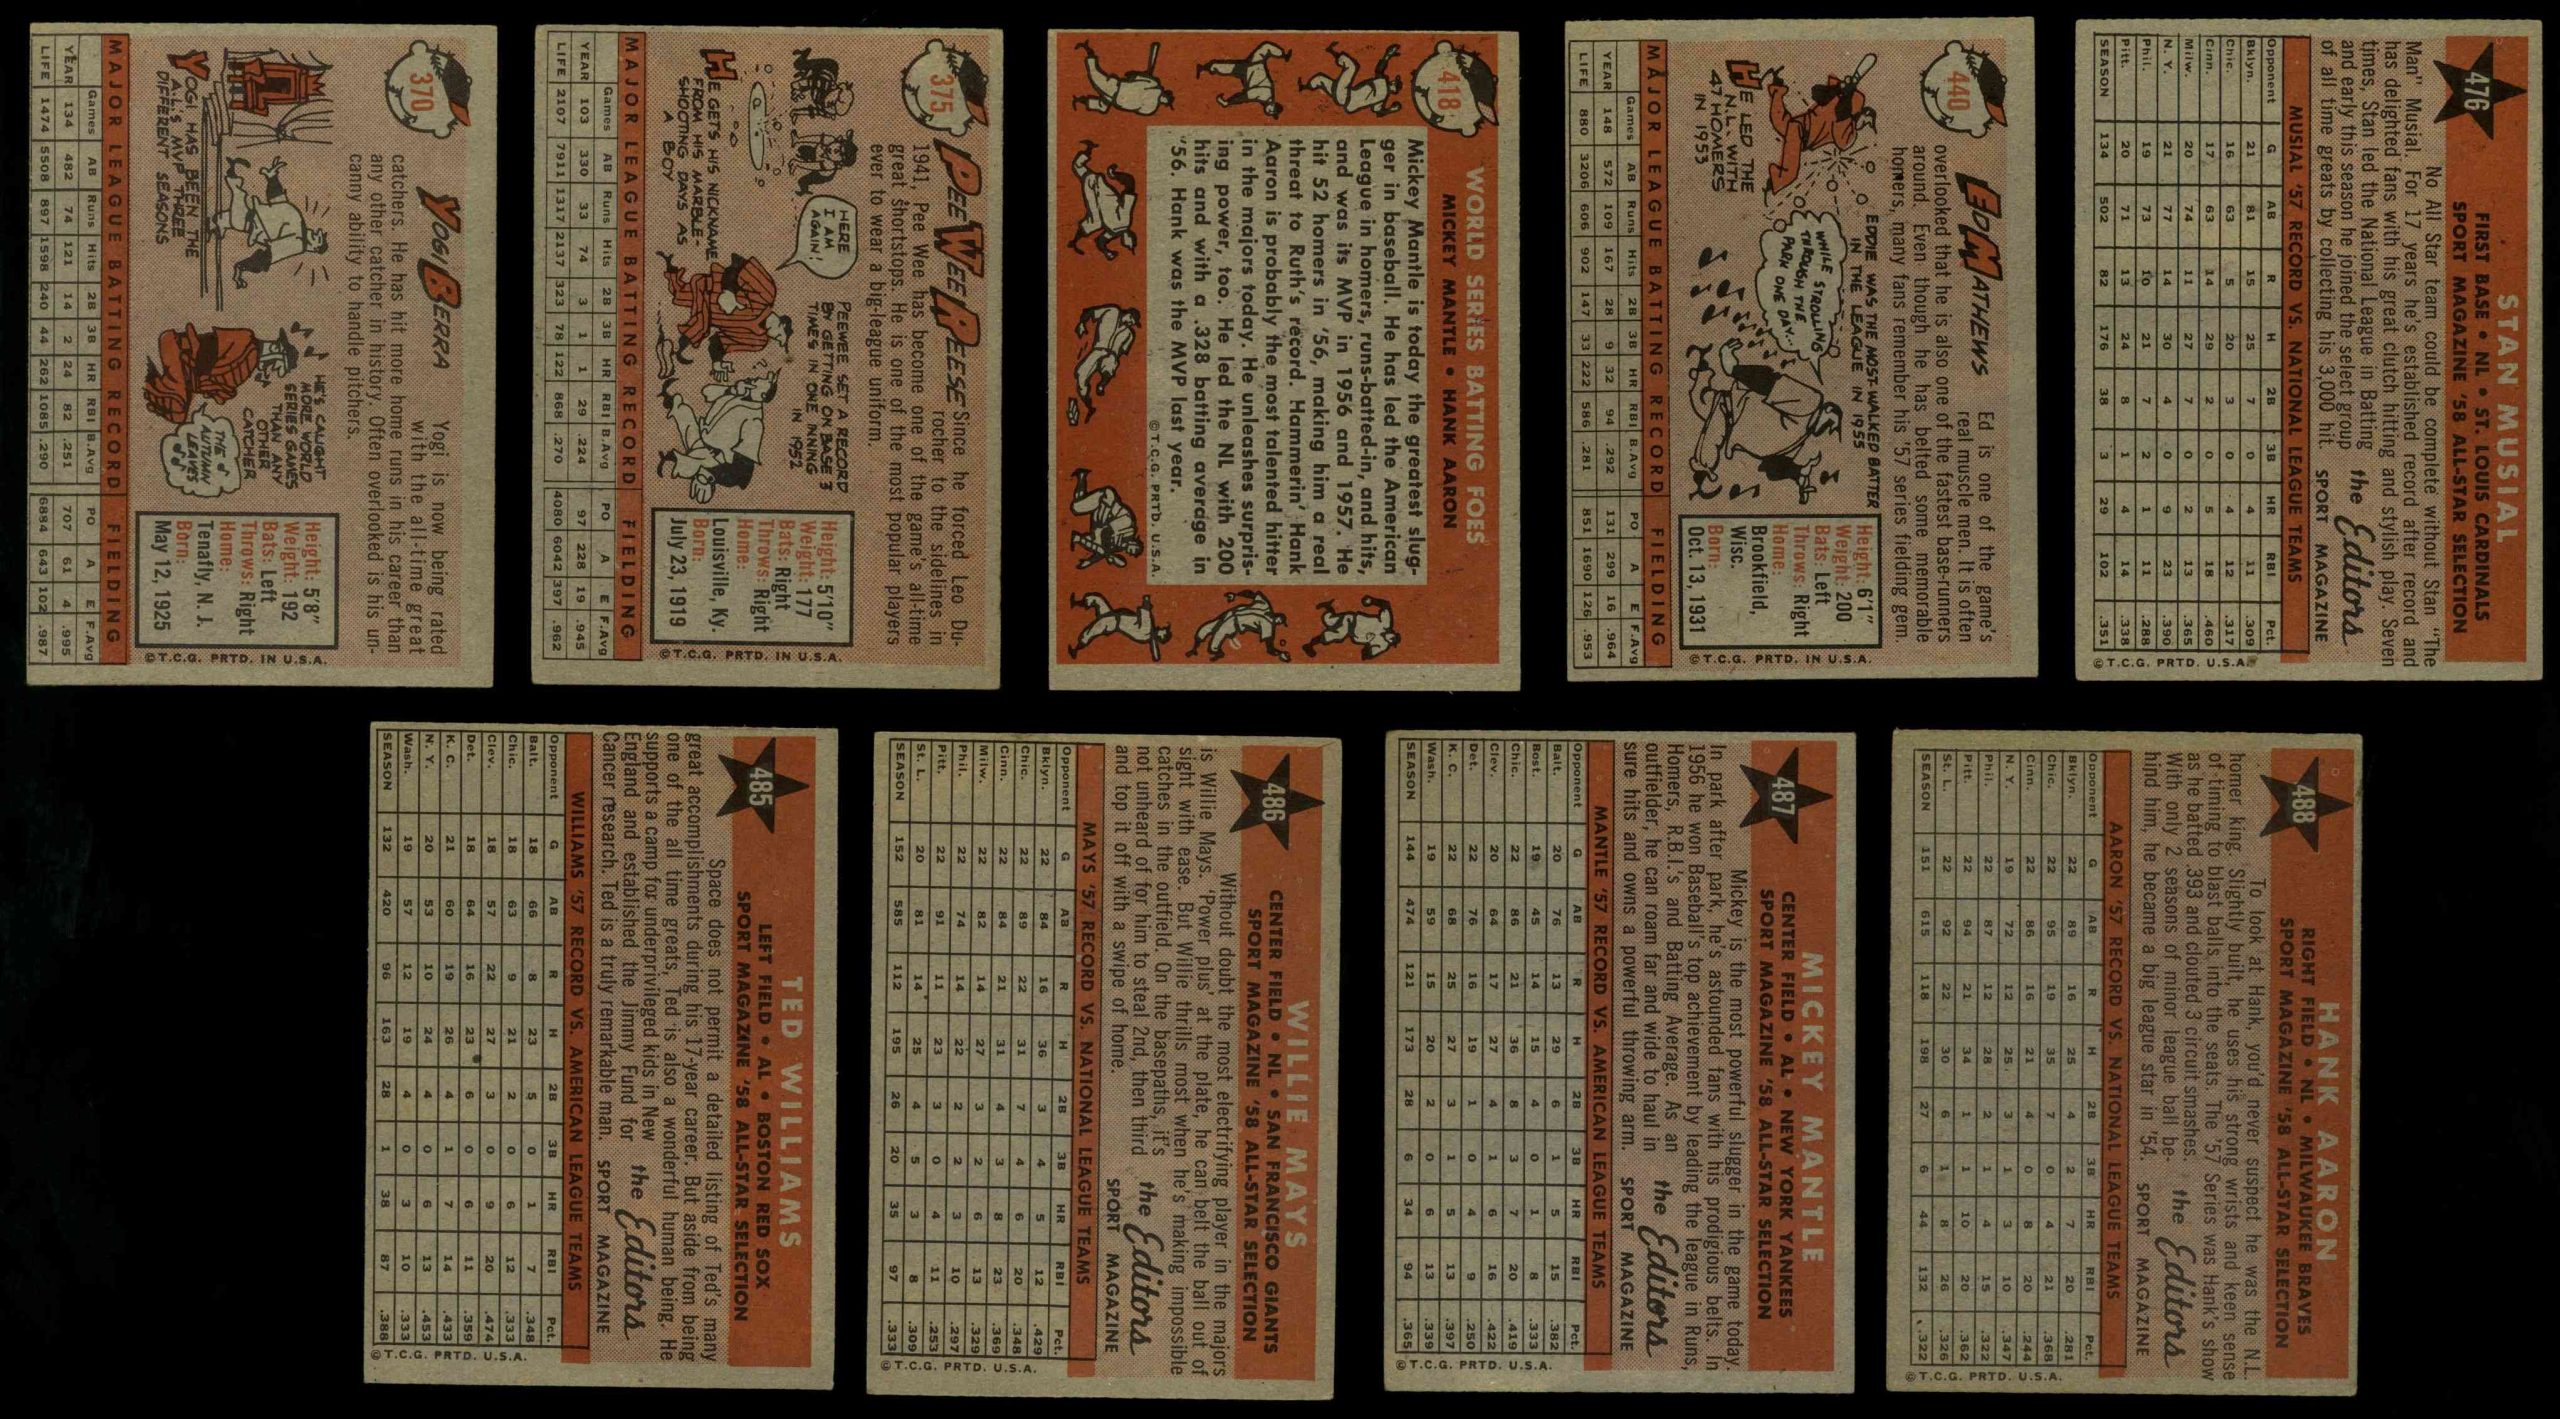 370
YOGI BERRA
Yogi is now being rated
with the all-time great
catchers. He has hit more home runs in his career than
any other catcher in history. Often overlooked is his un-
canny ability to handle pitchers.
YOGI HAS BEEN THE
A.L.'S MVP THREE
DIFFERENT SEASONS
HE'S CAUGHT
MORE WORLD
SERIES GAMES
THAN ANY
OTHER
CATCHER
THE
AUTUMN
LEAVES
Height: 5'8"
Weight: 192
Bats: Left
Throws: Right
Home:
Tenafly, N. J.
Born:
May 12, 1925
©T.C.G. PRTD. IN U.S.A.
MAJOR LEAGUE BATTING RECORD FIELDING
Games AB Runs Hits 2B 3B HR RBI B.Avg PO A E F.Avg
YEAR 134 482 74 121 14 2 24 82 .251 707 61 4 .995
LIFE 1474 5508 897 1598 240 44 262 1085 .290 6884 643 102 .987
375
PEE WEE REESE
Since he forced Leo Du-
rocher to the sidelines in
1941, Pee Wee has become one of the game's all-time
great shortstops. He is one of the most popular players
ever to wear a big-league uniform.
HE GETS HIS NICKNAME
FROM HIS MARBLE-
SHOOTING DAYS AS
A BOY
HERE
I AM
AGAIN!
PEEWEE SET A RECORD
BY GETTING ON BASE 3
TIMES IN ONE INNING
IN 1952
Height: 5'10"
Weight: 177
Bats: Right
Throws: Right
Home:
Louisville, Ky.
Born:
July 23, 1919
©T.C.G. PRTD. IN U.S.A.
MAJOR LEAGUE BATTING RECORD FIELDING
Games AB Runs Hits 2B 3B HR RBI B.Avg PO A E F.Avg
YEAR 103 330 33 74 3 1 1 29 .224 97 228 19 .945
LIFE 2107 7911 1317 2137 323 78 122 868 .270 4080 6042 397 .962
418
WORLD SERIES BATTING FOES
MICKEY MANTLE • HANK AARON
Mickey Mantle is today the greatest slug-
ger in baseball. He has led the American
League in homers, runs-batted-in, and hits,
and was its MVP in 1956 and 1957. He
hit 52 homers in '56, making him a real
threat to Ruth's record. Hammerin' Hank
Aaron is probably the most talented hitter
in the majors today. He unleashes surpris-
ing power, too. He led the NL with 200
hits and with a .328 batting average in
'56. Hank was the MVP last year.
©T.C.G. PRTD. U.S.A.
440
ED MATHEWS
Ed is one of the game's
real muscle men. It is often
overlooked that he is also one of the fastest base-runners
around. Even though he has belted some memorable
homers, many fans remember his '57 series fielding gem.
HE LED THE
N.L. WITH
47 HOMERS
IN 1953
EDDIE WAS THE MOST-WALKED BATTER
IN THE LEAGUE IN 1955
WHILE STROLLING
THROUGH THE
PARK ONE DAY...
Height: 6'1"
Weight: 200
Bats: Left
Throws: Right
Home:
Brookfield,
Wisc.
Born:
Oct. 13, 1931
©T.C.G. PRTD. IN U.S.A.
MAJOR LEAGUE BATTING RECORD FIELDING
Games AB Runs Hits 2B 3B HR RBI B.Avg PO A E F.Avg
YEAR 148 572 109 167 28 9 32 94 .292 131 299 16 .964
LIFE 880 3206 606 902 147 33 222 586 .281 851 1690 126 .953
476
STAN MUSIAL
FIRST BASE • NL • ST. LOUIS CARDINALS
SPORT MAGAZINE '58 ALL-STAR SELECTION
No All Star team could be complete without Stan "The
Man" Musial. For 17 years he's established record after record and
has delighted fans with his great clutch hitting and stylish play. Seven
times, Stan led the National League in Batting
and early this season he joined the select group
of all time greats by collecting his 3,000 hit.
the Editors
SPORT MAGAZINE
MUSIAL '57 RECORD VS. NATIONAL LEAGUE TEAMS
Opponent G AB R H 2B 3B HR RBI Pct.
Bklyn. 21 81 15 25 7 0 4 11 .309
Chic. 16 63 5 20 3 0 4 12 .317
Cinn. 17 63 14 29 2 0 5 18 .460
Milw. 20 74 11 27 7 0 2 13 .365
N. Y. 21 77 14 30 4 0 9 23 .390
Phil. 19 73 10 21 7 2 1 11 .288
Pitt. 20 71 13 24 8 1 4 14 .338
SEASON 134 502 82 176 38 3 29 102 .351
©T.C.G. PRTD. U.S.A.
485
TED WILLIAMS
LEFT FIELD • AL • BOSTON RED SOX
SPORT MAGAZINE '58 ALL-STAR SELECTION
Space does not permit a detailed listing of Ted's many
great accomplishments during his 17-year career. But aside from being
one of the all time greats, Ted is also a wonderful human being. He
supports a camp for underprivileged kids in New
England and established the Jimmy Fund for
Cancer research. Ted is a truly remarkable man.
the Editors
SPORT MAGAZINE
WILLIAMS '57 RECORD VS. AMERICAN LEAGUE TEAMS
Opponent G AB R H 2B 3B HR RBI Pct.
Balt. 18 66 8 23 5 0 1 7 .348
Chic. 18 63 9 21 2 0 6 12 .333
Clev. 18 57 22 27 3 0 9 20 .474
Det. 18 64 16 23 6 0 6 11 .359
K. C. 21 60 19 26 4 1 7 14 .433
N. Y. 20 53 10 24 4 0 6 13 .453
Wash. 19 57 12 19 4 0 3 10 .333
SEASON 132 420 96 163 28 1 38 87 .388
©T.C.G. PRTD. U.S.A.
486
WILLIE MAYS
CENTER FIELD • NL • SAN FRANCISCO GIANTS
SPORT MAGAZINE '58 ALL-STAR SELECTION
Without doubt the most electrifying player in the majors
is Willie Mays. 'Power plus' at the plate, he can belt the ball out of
sight with ease. But Willie thrills most when he's making impossible
catches in the outfield. On the basepaths, it's
not unheard of for him to steal 2nd, then third
and top it off with a swipe of home.
the Editors
SPORT MAGAZINE
MAYS '57 RECORD VS. NATIONAL LEAGUE TEAMS
Opponent G AB R H 2B 3B HR RBI Pct.
Bklyn. 22 84 16 36 3 4 5 12 .429
Chic. 22 89 22 31 7 4 6 20 .348
Cinn. 22 84 21 31 4 3 8 23 .369
Milw. 22 82 14 27 3 2 6 13 .329
Phil. 22 74 14 22 2 2 3 10 .297
Pitt. 22 91 11 23 3 0 4 11 .253
St. L. 20 81 14 25 4 5 3 8 .309
SEASON 152 585 112 195 26 20 35 97 .333
©T.C.G. PRTD. U.S.A.
487
MICKEY MANTLE
CENTER FIELD • AL • NEW YORK YANKEES
SPORT MAGAZINE '58 ALL-STAR SELECTION
Mickey is the most powerful slugger in the game today.
In park after park, he's astounded fans with his prodigious belts. In
1956 he won Baseball's top achievement by leading the league in Runs,
Homers, R.B.I.'s and Batting Average. As an
outfielder, he can roam far and wide to haul in
sure hits and owns a powerful throwing arm.
the Editors
SPORT MAGAZINE
MANTLE '57 RECORD VS. AMERICAN LEAGUE TEAMS
Opponent G AB R H 2B 3B HR RBI Pct.
Balt. 20 76 13 29 6 1 5 15 .382
Bost. 19 45 14 15 4 0 1 8 .333
Chic. 22 86 21 36 8 3 7 20 .419
Clev. 20 64 17 27 4 1 6 16 .422
Det. 22 76 16 19 1 0 4 9 .250
K. C. 22 68 25 27 3 1 5 13 .397
Wash. 19 59 15 20 2 0 6 13 .339
SEASON 144 474 121 173 28 6 34 94 .365
©T.C.G. PRTD. U.S.A.
488
HANK AARON
RIGHT FIELD • NL • MILWAUKEE BRAVES
SPORT MAGAZINE '58 ALL-STAR SELECTION
To look at Hank, you'd never suspect he was the N.L.
homer king. Slightly built, he uses his strong wrists and keen sense
of timing to blast balls into the seats. The '57 Series was Hank's show
as he batted .393 and clouted 3 circuit smashes.
With only 2 seasons of minor league ball be-
hind him, he became a big league star in '54.
the Editors
SPORT MAGAZINE
AARON '57 RECORD VS. NATIONAL LEAGUE TEAMS
Opponent G AB R H 2B 3B HR RBI Pct.
Bklyn. 22 89 16 25 4 2 7 20 .281
Chic. 22 95 19 35 7 0 4 21 .368
Cinn. 22 86 16 21 4 0 8 20 .244
N. Y. 19 72 12 25 3 1 3 10 .347
Phil. 22 87 12 28 2 1 4 15 .322
Pitt. 22 94 21 34 1 1 10 20 .362
St. L. 22 92 22 30 6 1 8 26 .326
SEASON 151 615 118 198 27 6 44 132 .322
©T.C.G. PRTD. U.S.A.